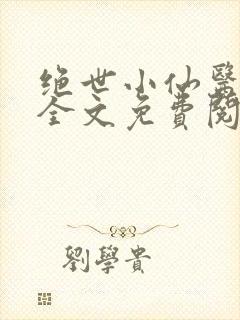 绝世小仙醫
全文免費閱
劉學貴